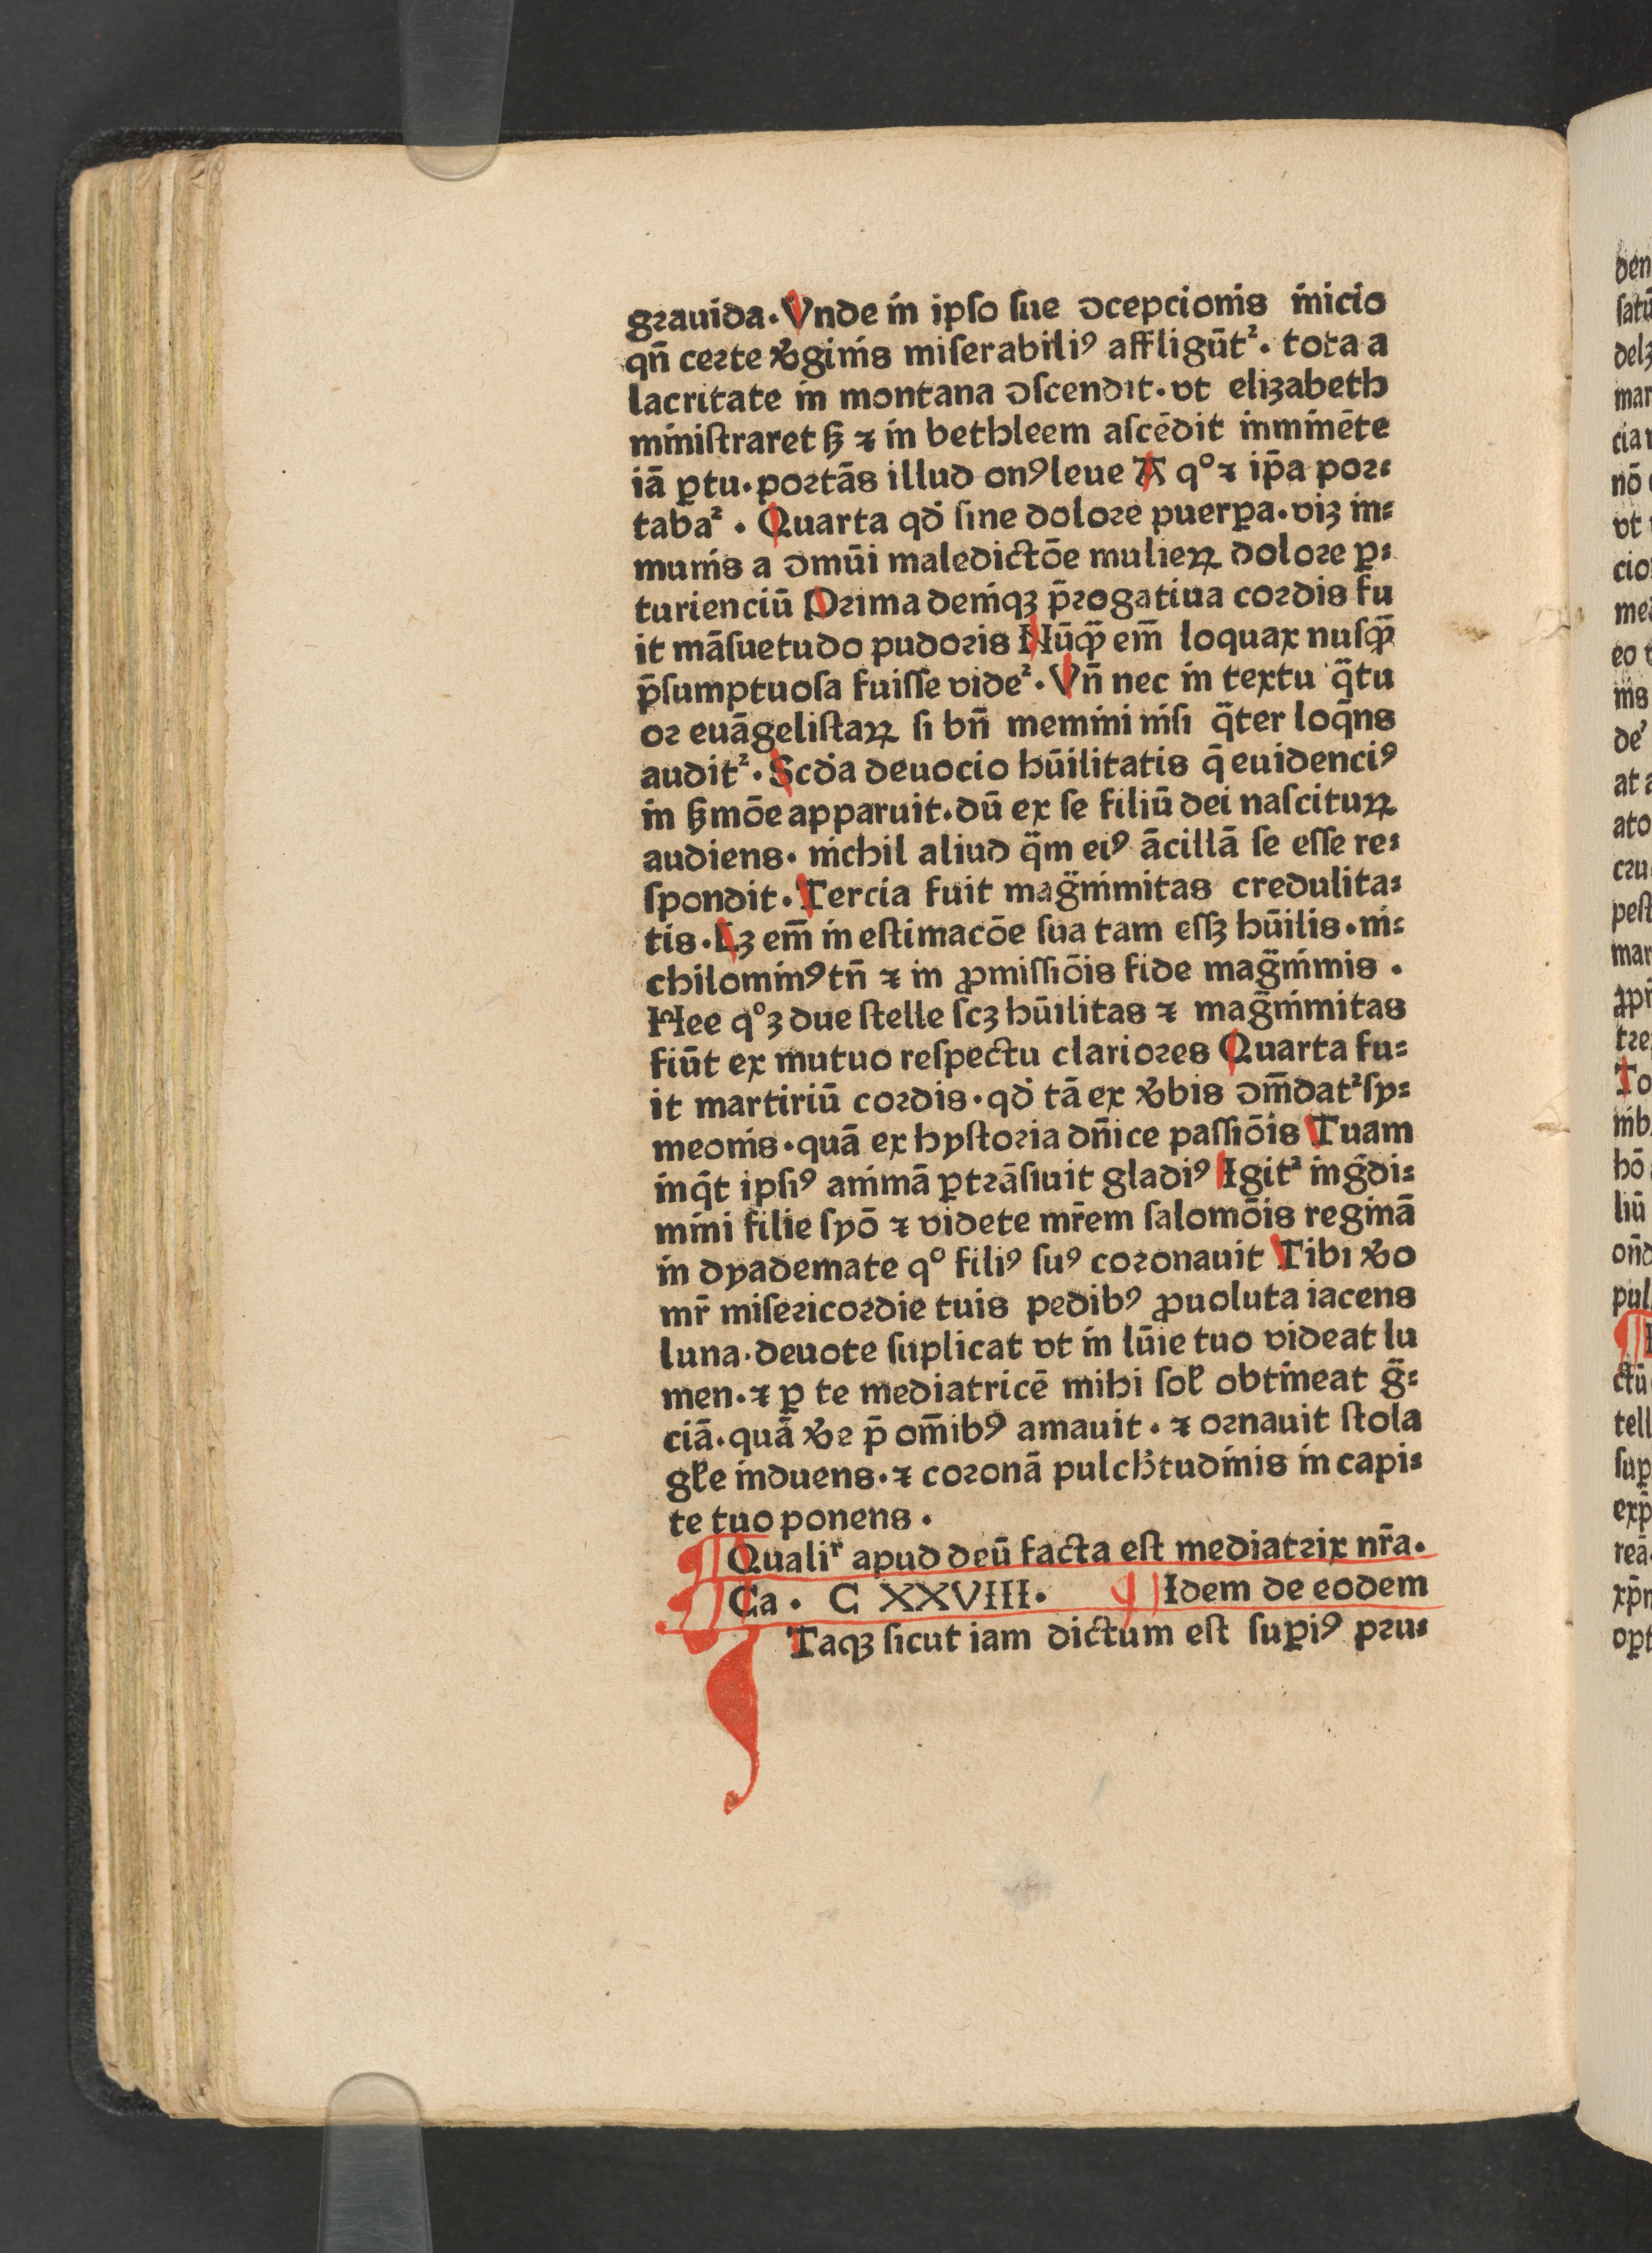 grauida. Vnde in ipſo ſue ↄcepcionis inicio
qn̄ certe ꝟginis miſerabiliꝰ affligūt². tota a
lacritate in montana ↄſcendit. vt elizabeth
miniſtraret ẜꝫ ⁊ in bethleem aſcēdit inminēte
iā ꝑtu. portās illud onꝰ leue A q° ⁊ ip̄a por⸗
taba². Quarta qd̓ ſine dolore puerꝑa. viꝫ in⸗
munis a ↄmūi maledictōe mulieꝝ dolore ꝑ⸗
turienciū Prima deniqꝫ p̄rogatiua cordis fu
it māſuetudo pudoris Nūqꝫ̄ em̄ loquax nuſqꝫ̄
p̄ſumptuoſa fuiſſe vide². Vn̄ nec in textu q̄tu
or euāgeliſtaꝝ ſi bn̄ memini niſi q̄ter loq̄ns
audit². Scd̓a deuocio hūilitatis q̄ euidenciꝰ
in ẜmōe apparuit. dū ex ſe filiū dei naſcituꝝ
audiens. nichil aliud q̄m eiꝰ ācillā ſe eſſe re⸗
ſpondit. Tercia fuit mag̃nimitas credulita⸗
tis. Lꝫ em̄ in eſtimacōe ſua tam eſſꝫ hūilis. ni⸗
chilominꝰ tn̄ ⁊ in ꝓmiſſiōis fide mag̃nimis.
Hee q°ꝫ due ſtelle ſcꝫ hūilitas ⁊ mag̃nimitas
fiūt ex mutuo reſpectu clariores Quarta fu⸗
it martiriū cordis. qd̓ tā ex ꝟbis ↄm̄dat² ſy⸗
meonis. quā ex hyſtoria dn̄ice paſſiōis Tuam
inq̄t ipſiꝰ animā ꝑtrāſiuit gladiꝰ Igit² ing̃di⸗
mini filie ſyō ⁊ videte mr̄em ſalomōis reginā
in dyademate q° filiꝰ ſuꝰ coronauit Tibi ꝟo
mr̄ miſericordie tuis pedibꝰ ꝓuoluta iacens
luna. deuote ſuplicat vt in lūie tuo videat lu
men. ⁊ ꝑ te mediatricē mihi ſoł obtineat g̃⸗
ciā. quā ꝟe p̄ om̄ibꝰ amauit. ⁊ ornauit ſtola
głe induens. ⁊ coronā pulch̓tudinis in capi⸗
te tuo ponens.
¶ Qualiſ apud deū facta eſt mediatrix nr̄a.
¶ Ca. C XXVIII. ¶ Idem de eodem
ITaqꝫ ſicut iam dictum eſt ſuꝑiꝰ pru⸗